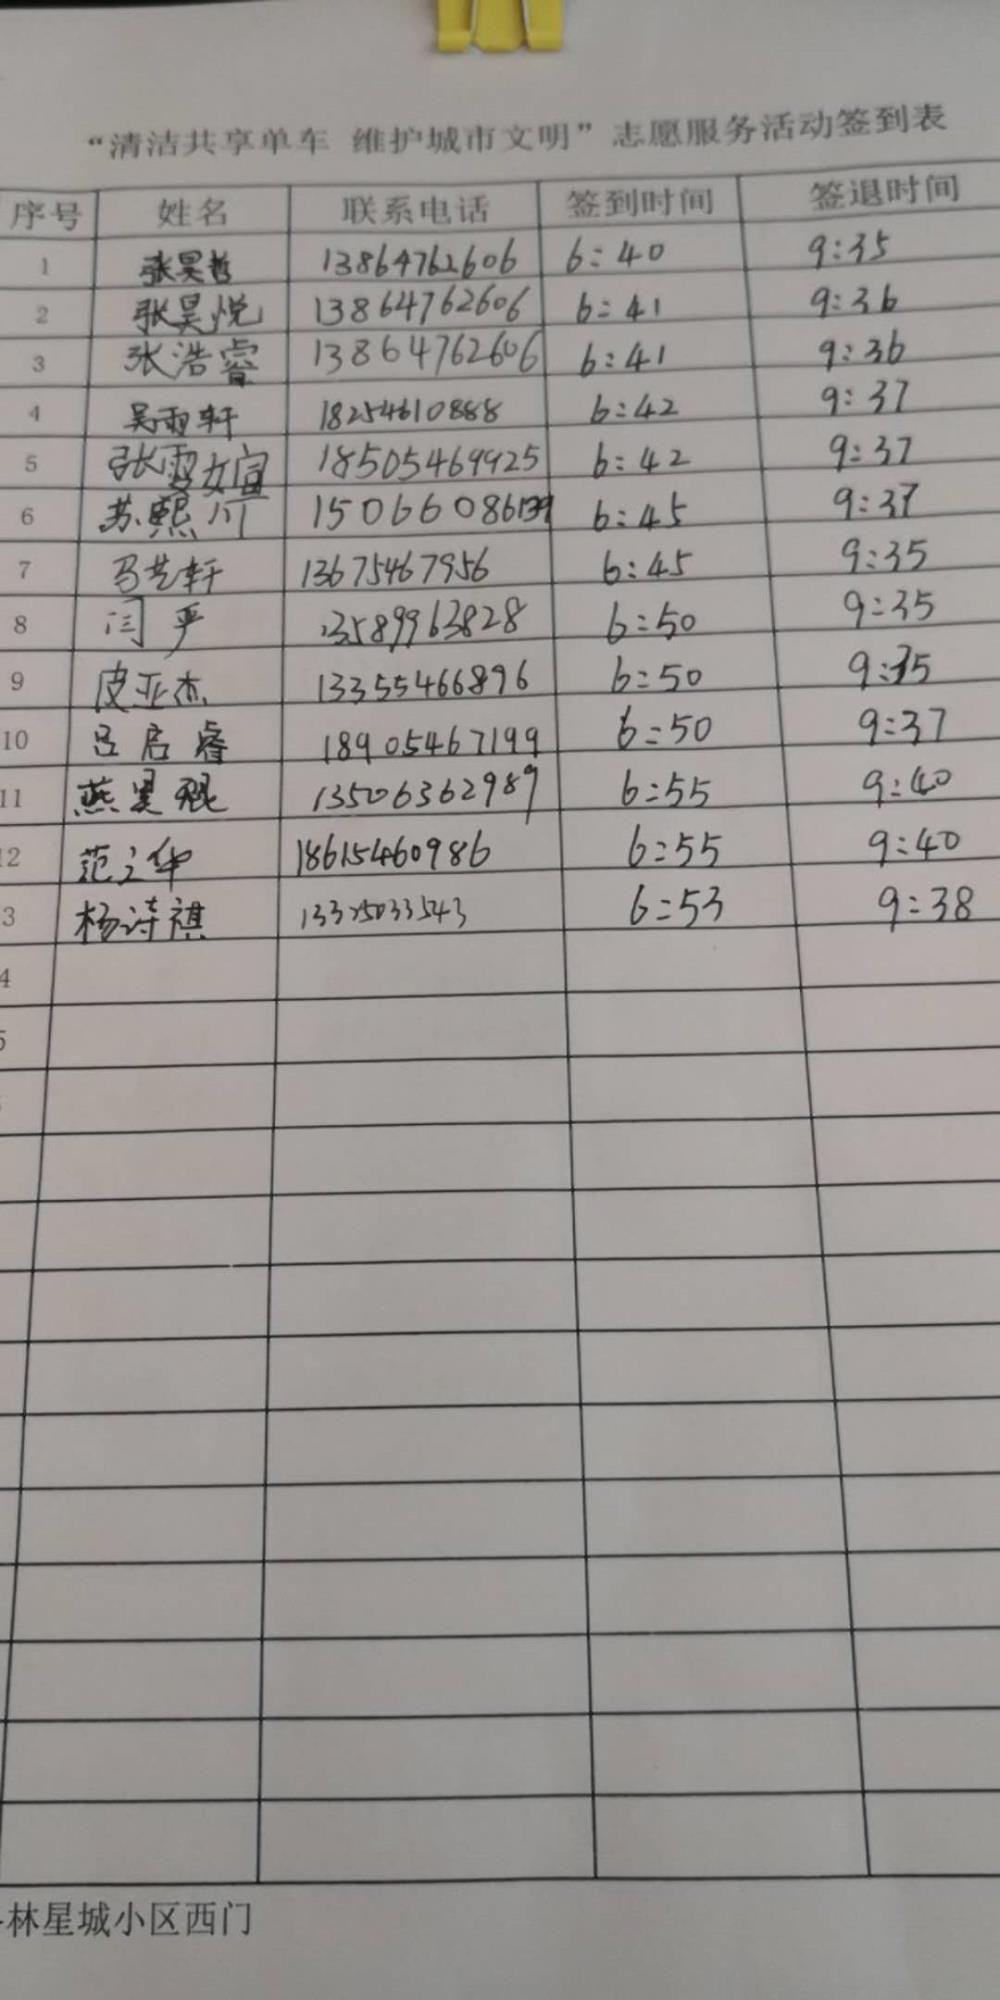 “清洁共享单车 维护城市文明”志愿服务活动签到表
序号 姓名 联系电话 签到时间 签退时间
1 张昊哲 13864762606 6:40 9:35
2 张昊悦 13864762606 6:41 9:36
3 张浩睿 13864762606 6:41 9:36
4 吴雨轩 18254610888 6:42 9:37
5 张雪宜 18505469925 6:42 9:37
6 苏熙川 15066086139 6:45 9:37
7 马艺轩 13675467956 6:45 9:35
8 闫严 13589963828 6:50 9:35
9 皮亚杰 13355466896 6:50 9:35
10 吕启睿 18905467199 6:50 9:37
11 燕昊 13506362989 6:55 9:40
12 范立华 18615460986 6:55 9:40
3 杨诗祺 13325033543 6:53 9:38
4
5
林星城小区西门